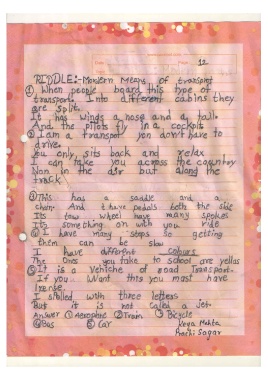 Page 12
RIDDLE:- Modern Means of transport
① When people board this type of
transport. Into different cabins they
are split.
It has winds a nose and a tail.
And the pilots fly in a cockpit
② I am a transport you don't have to
drive.
You only sits back and relax
I can take you across the country
Non in the air but along the
track
③ This has a saddle and a
chain. And t have pedals both the side
Its tow wheel have many spokes
Its something on with you ride
④ I have many stops so getting
then can be slow
I have different colours
The Ones you take to school are yellas
⑤ It is a Vehiche of road Transport.
If you Want this you mast have
license.
I stalled with three letters
But it is not called a Jet.
Answer ① Aeroplne ② Train ③ Bicycle
④ Bus ⑤ Car Keya Mehta
Prachi Sagar